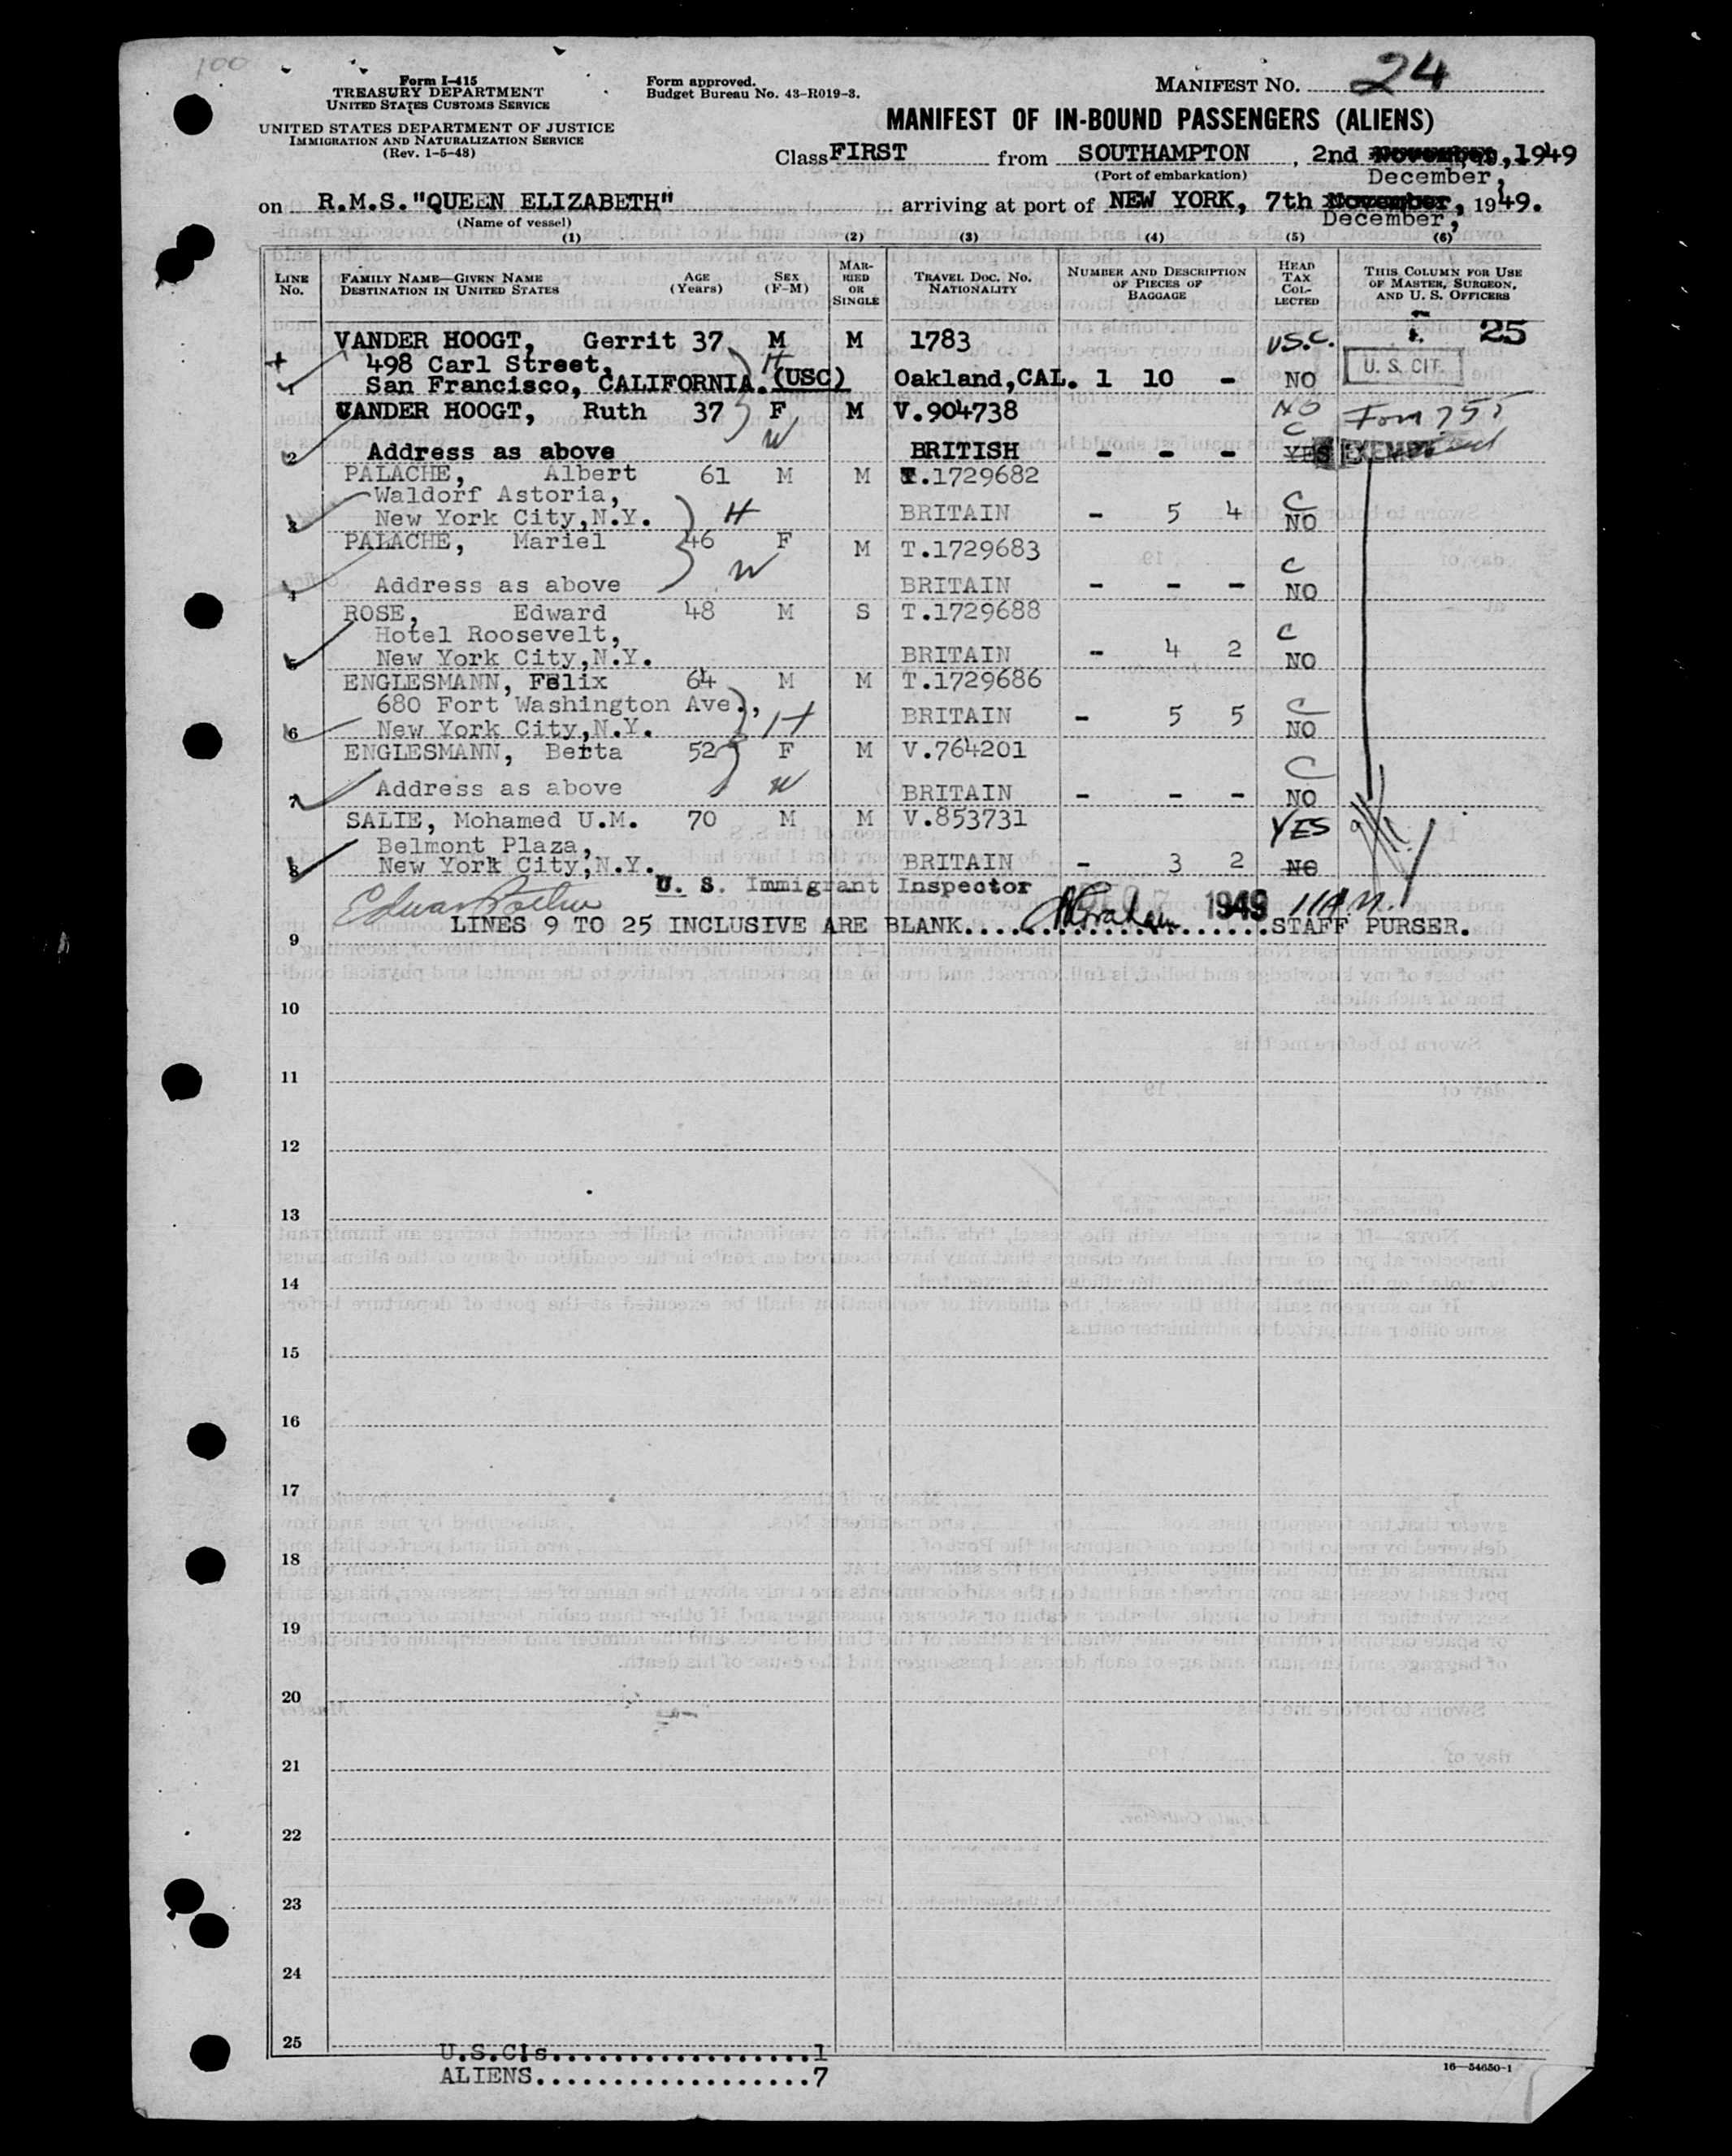 100
Form I-415
TREASURY DEPARTMENT
UNITED STATES CUSTOMS SERVICE
UNITED STATES DEPARTMENT OF JUSTICE
IMMIGRATION AND NATURALIZATION SERVICE
(Rev. 1-5-48)
Form approved.
Budget Bureau No. 43-R019-3.
MANIFEST NO. 24
MANIFEST OF IN-BOUND PASSENGERS (ALIENS)
Class FIRST from SOUTHAMPTON, 2nd November, 1949
(Port of embarkation) December,
on R.M.S. "QUEEN ELIZABETH" arriving at port of NEW YORK, 7th November, 1949.
(Name of vessel) December,
(1) (2) (3) (4) (5) (6)
LINE No. FAMILY NAME—GIVEN NAME DESTINATION IN UNITED STATES AGE (Years) SEX (F-M) MARRIED OR SINGLE TRAVEL DOC. NO. NATIONALITY NUMBER AND DESCRIPTION OF PIECES OF BAGGAGE HEAD TAX COLLECTED THIS COLUMN FOR USE OF MASTER, SURGEON, AND U. S. OFFICERS
VANDER HOOGT, Gerrit 37 M M 1783 U.S.C. 25
498 Carl Street, H U. S. CIT.
1 San Francisco, CALIFORNIA. (USC) Oakland, CAL. 1 10 - NO
VANDER HOOGT, Ruth 37 F M V.904738 NO
W C
2 Address as above BRITISH - - - YES EXEMPT
PALACHE, Albert 61 M M T.1729682
Waldorf Astoria,
3 New York City, N.Y. H BRITAIN - 5 4 C NO
PALACHE, Mariel 46 F M T.1729683
W C
4 Address as above BRITAIN - - - NO
ROSE, Edward 48 M S T.1729688
Hotel Roosevelt, C
5 New York City, N.Y. BRITAIN - 4 2 NO
ENGLESMANN, Felix 64 M M T.1729686
680 Fort Washington Ave., H C
6 New York City, N.Y. BRITAIN - 5 5 NO
ENGLESMANN, Berta 52 F M V.764201
W C
7 Address as above BRITAIN - - - NO
SALIE, Mohamed U.M. 70 M M V.853731 YES
Belmont Plaza,
8 New York City, N.Y. BRITAIN - 3 2 NO
U. S. Immigrant Inspector 1949
9 LINES 9 TO 25 INCLUSIVE ARE BLANK.......................STAFF PURSER.
10
11
12
13
14
15
16
17
18
19
20
21
22
23
24
25
U.S.C!s...................1
ALIENS...................7
16—54650-1